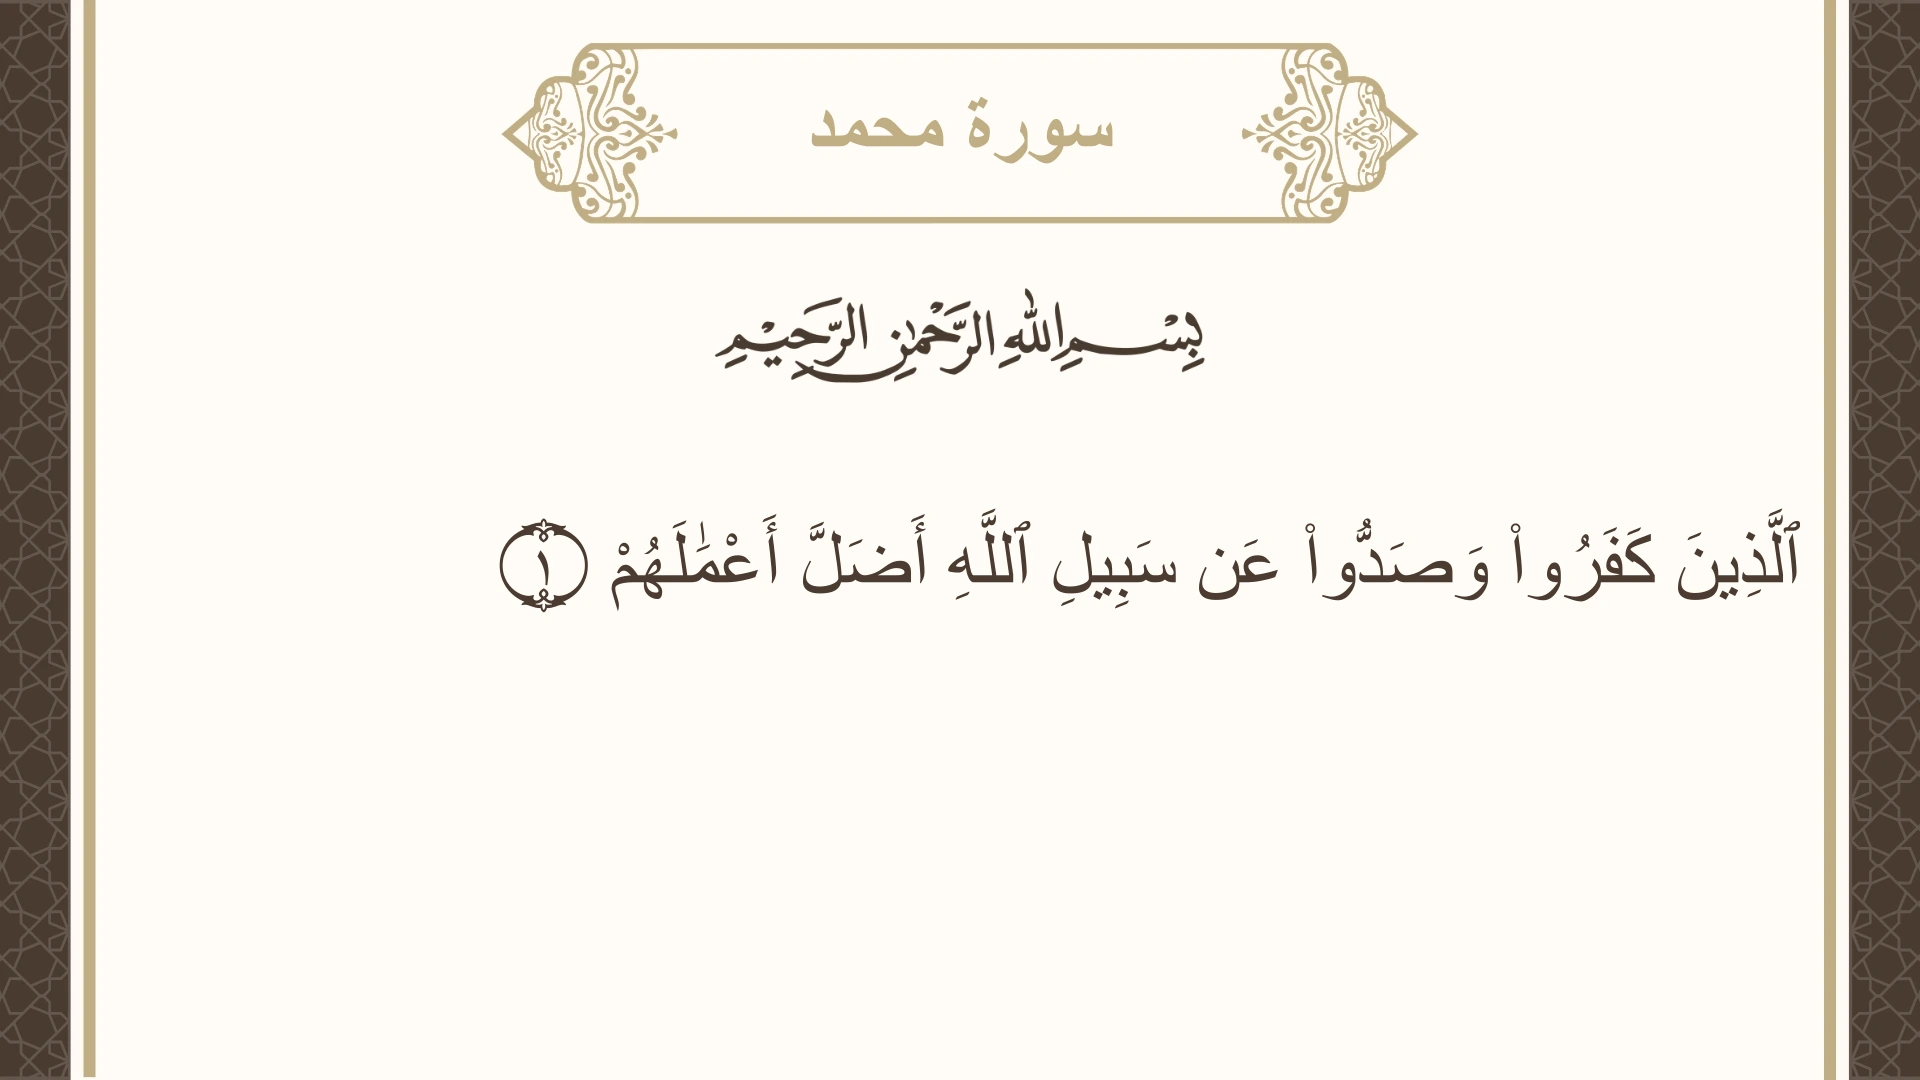 سورة محمد
بِسْمِ اللهِ الرَّحْمٰنِ الرَّحِيْمِ
ٱلَّذِينَ كَفَرُوا۟ وَصَدُّوا۟ عَن سَبِيلِ ٱللَّهِ أَضَلَّ أَعْمَـٰلَهُمْ ١